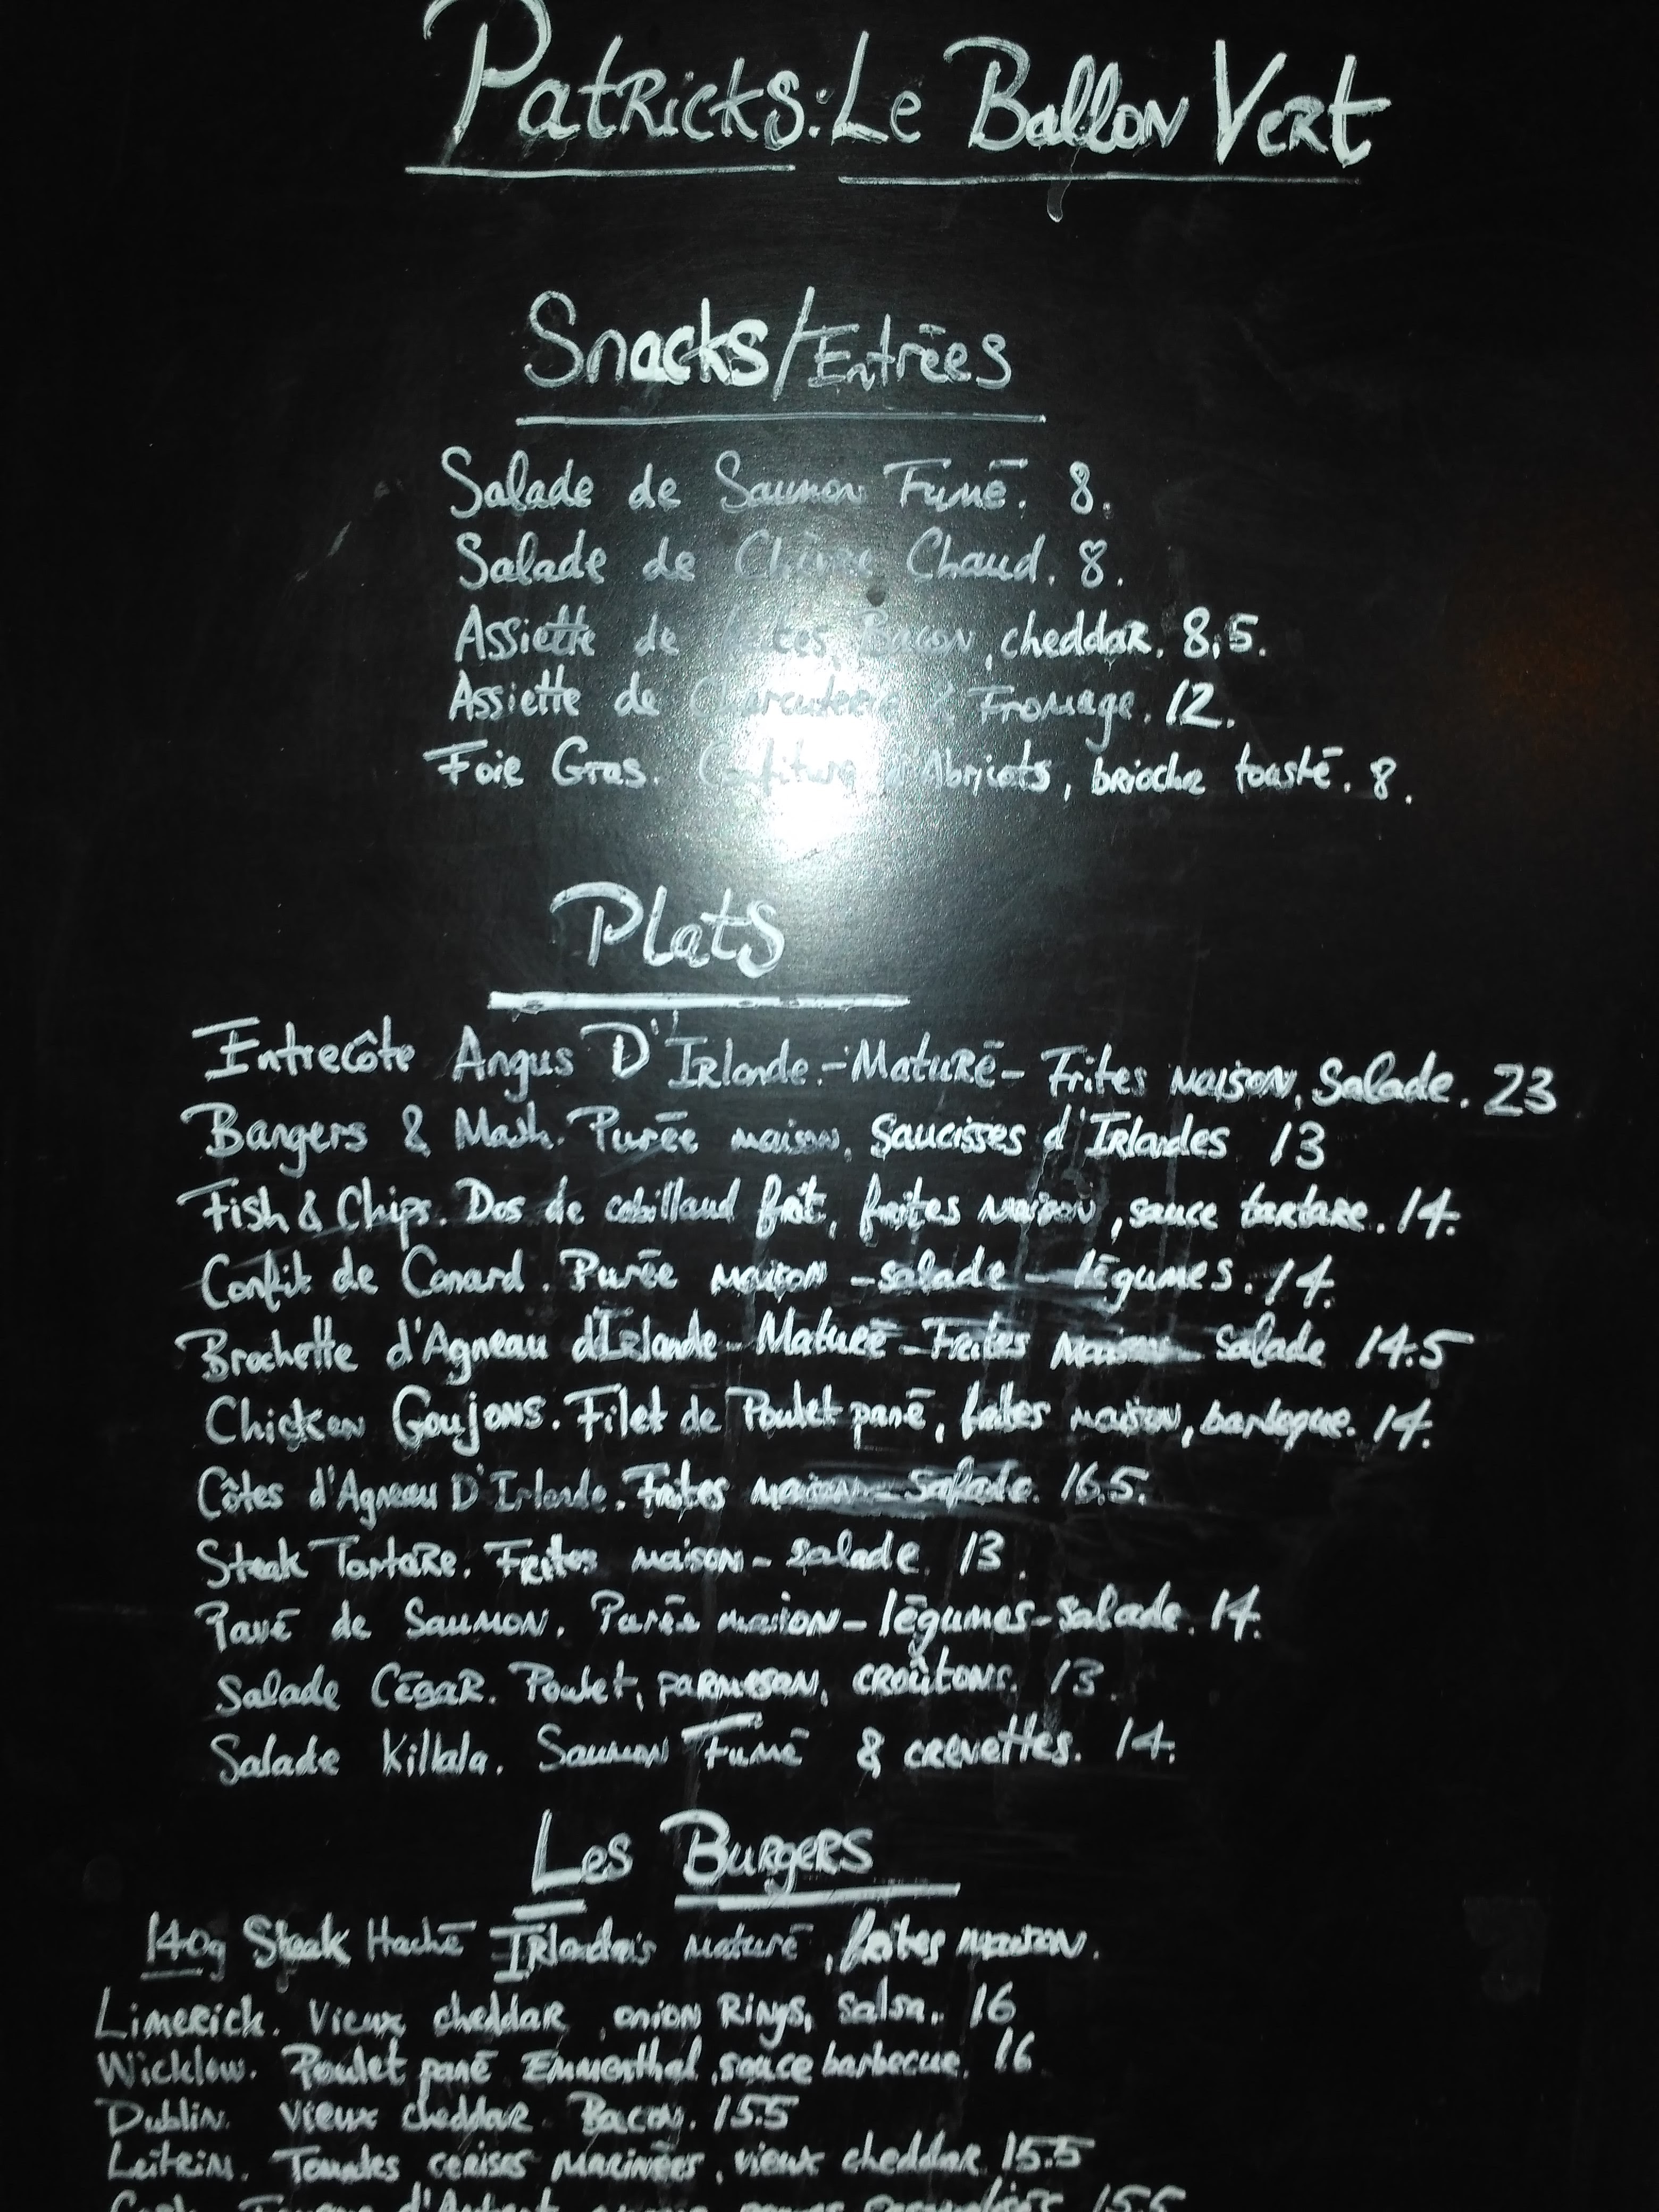 Patricks: Le Ballon Vert
Snacks/Entrées
Salade de Saumon Fumé. 8.
Salade de Chèvre Chaud. 8.
Assiette de Bacon, cheddar. 8,5.
Assiette de Charcuterie & Fromage. 12.
Foie Gras. Confiture Abricots, brioche toasté. 8.
Plats
Entrecôte Angus D'Irlande.-Maturé- Frites maison, Salade. 23
Bangers & Mash. Purée maison, Saucisses d'Irlandes 13
Fish & Chips. Dos de cabillaud frit, frites maison, sauce tartare. 14.
Confit de Canard. Purée maison -salade- légumes. 14.
Brochette d'Agneau d'Irlande-Maturé-Frites maison Salade 14.5
Chicken Goujons. Filet de Poulet pané, frites maison, barbeque. 14.
Côtes d'Agneau D'Irlande. Frites maison-Salade. 16.5.
Steak Tartare. Frites maison- salade. 13.
Pavé de Saumon. Purée maison- légumes-salade. 14.
Salade César. Poulet, parmesan, croûtons. 13.
Salade Killala. Saumon Fumé & crevettes. 14.
Les Burgers
140g Steak Haché Irlandais maturé, frites maison.
Limerick. Vieux cheddar, onion Rings, Salsa.. 16
Wicklow. Poulet pané Emmenthal, sauce barbecue. 16
Dublin. Vieux cheddar. Bacon. 15.5
Leitrim. Tomates cerises marinées, vieux cheddar 15.5